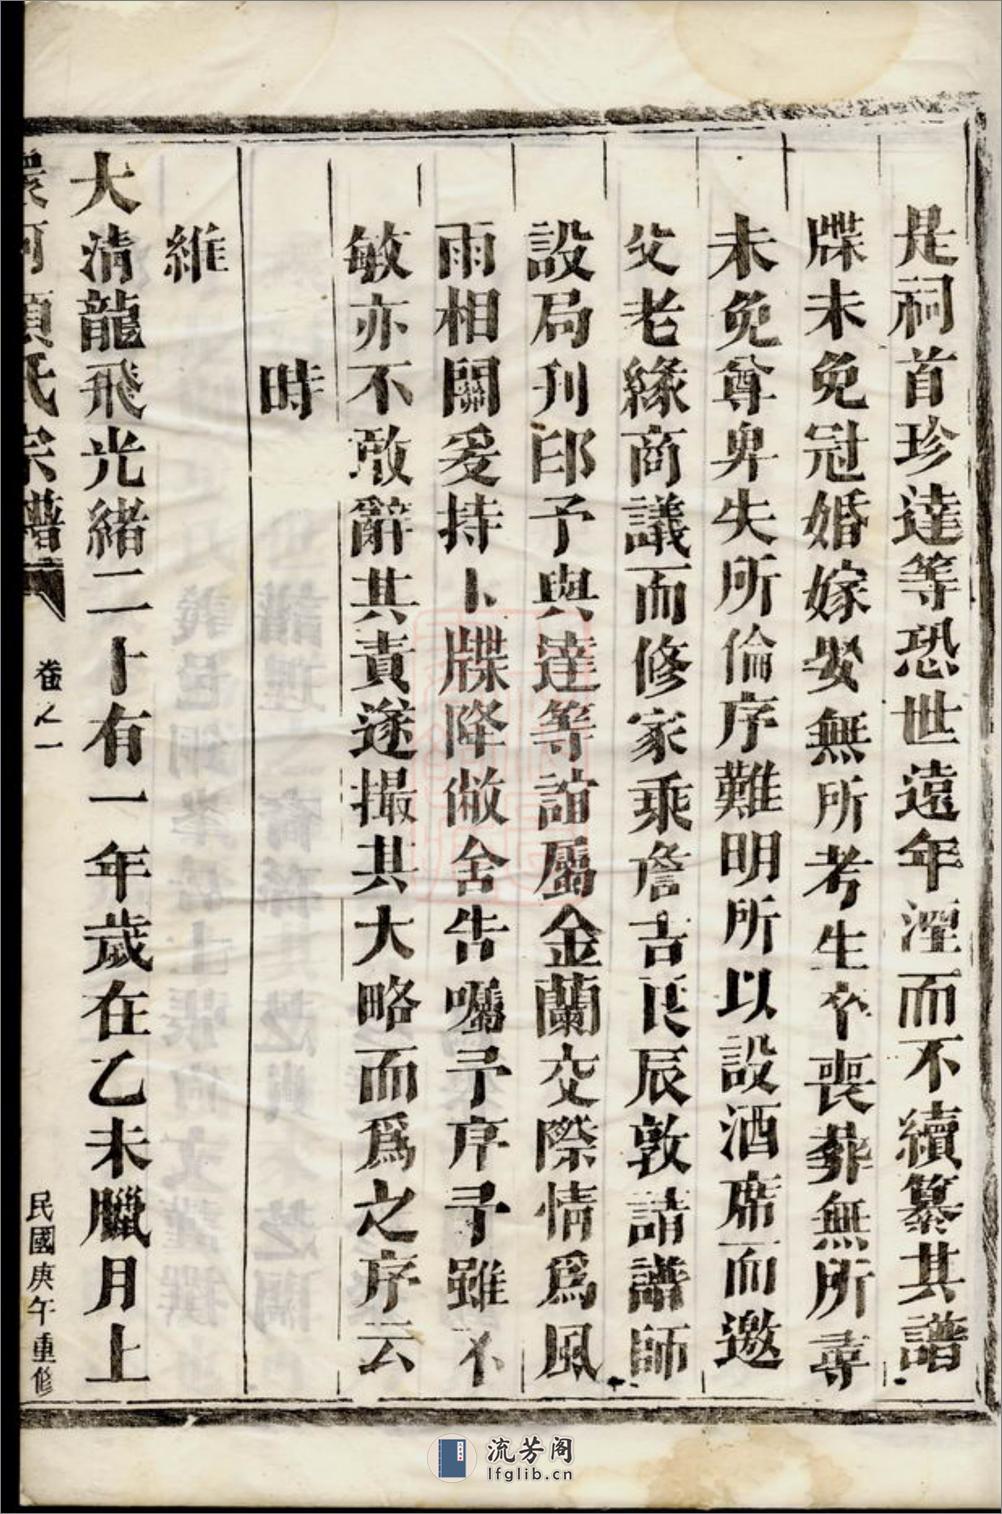 是祠首珍達等恐世遠年湮而不續纂其譜
牒未免冠婚嫁娶無所考生卒喪葬無所尋
未免尊卑失所倫序難明所以設酒席而邀
父老緣商議而修家乘詹吉良辰敦請譜師
設局刋印予與達等誼屬金蘭交際情爲風
雨相關爰持卜牒降敝舍告囑予序予雖不
敏亦不敢辭其責遂撮其大略而爲之序云
時
維
大清龍飛光緒二十有一年歲在乙未臘月上
河項氏宗譜 卷之一 民國庚午重修
流芳阁
lfglib.cn